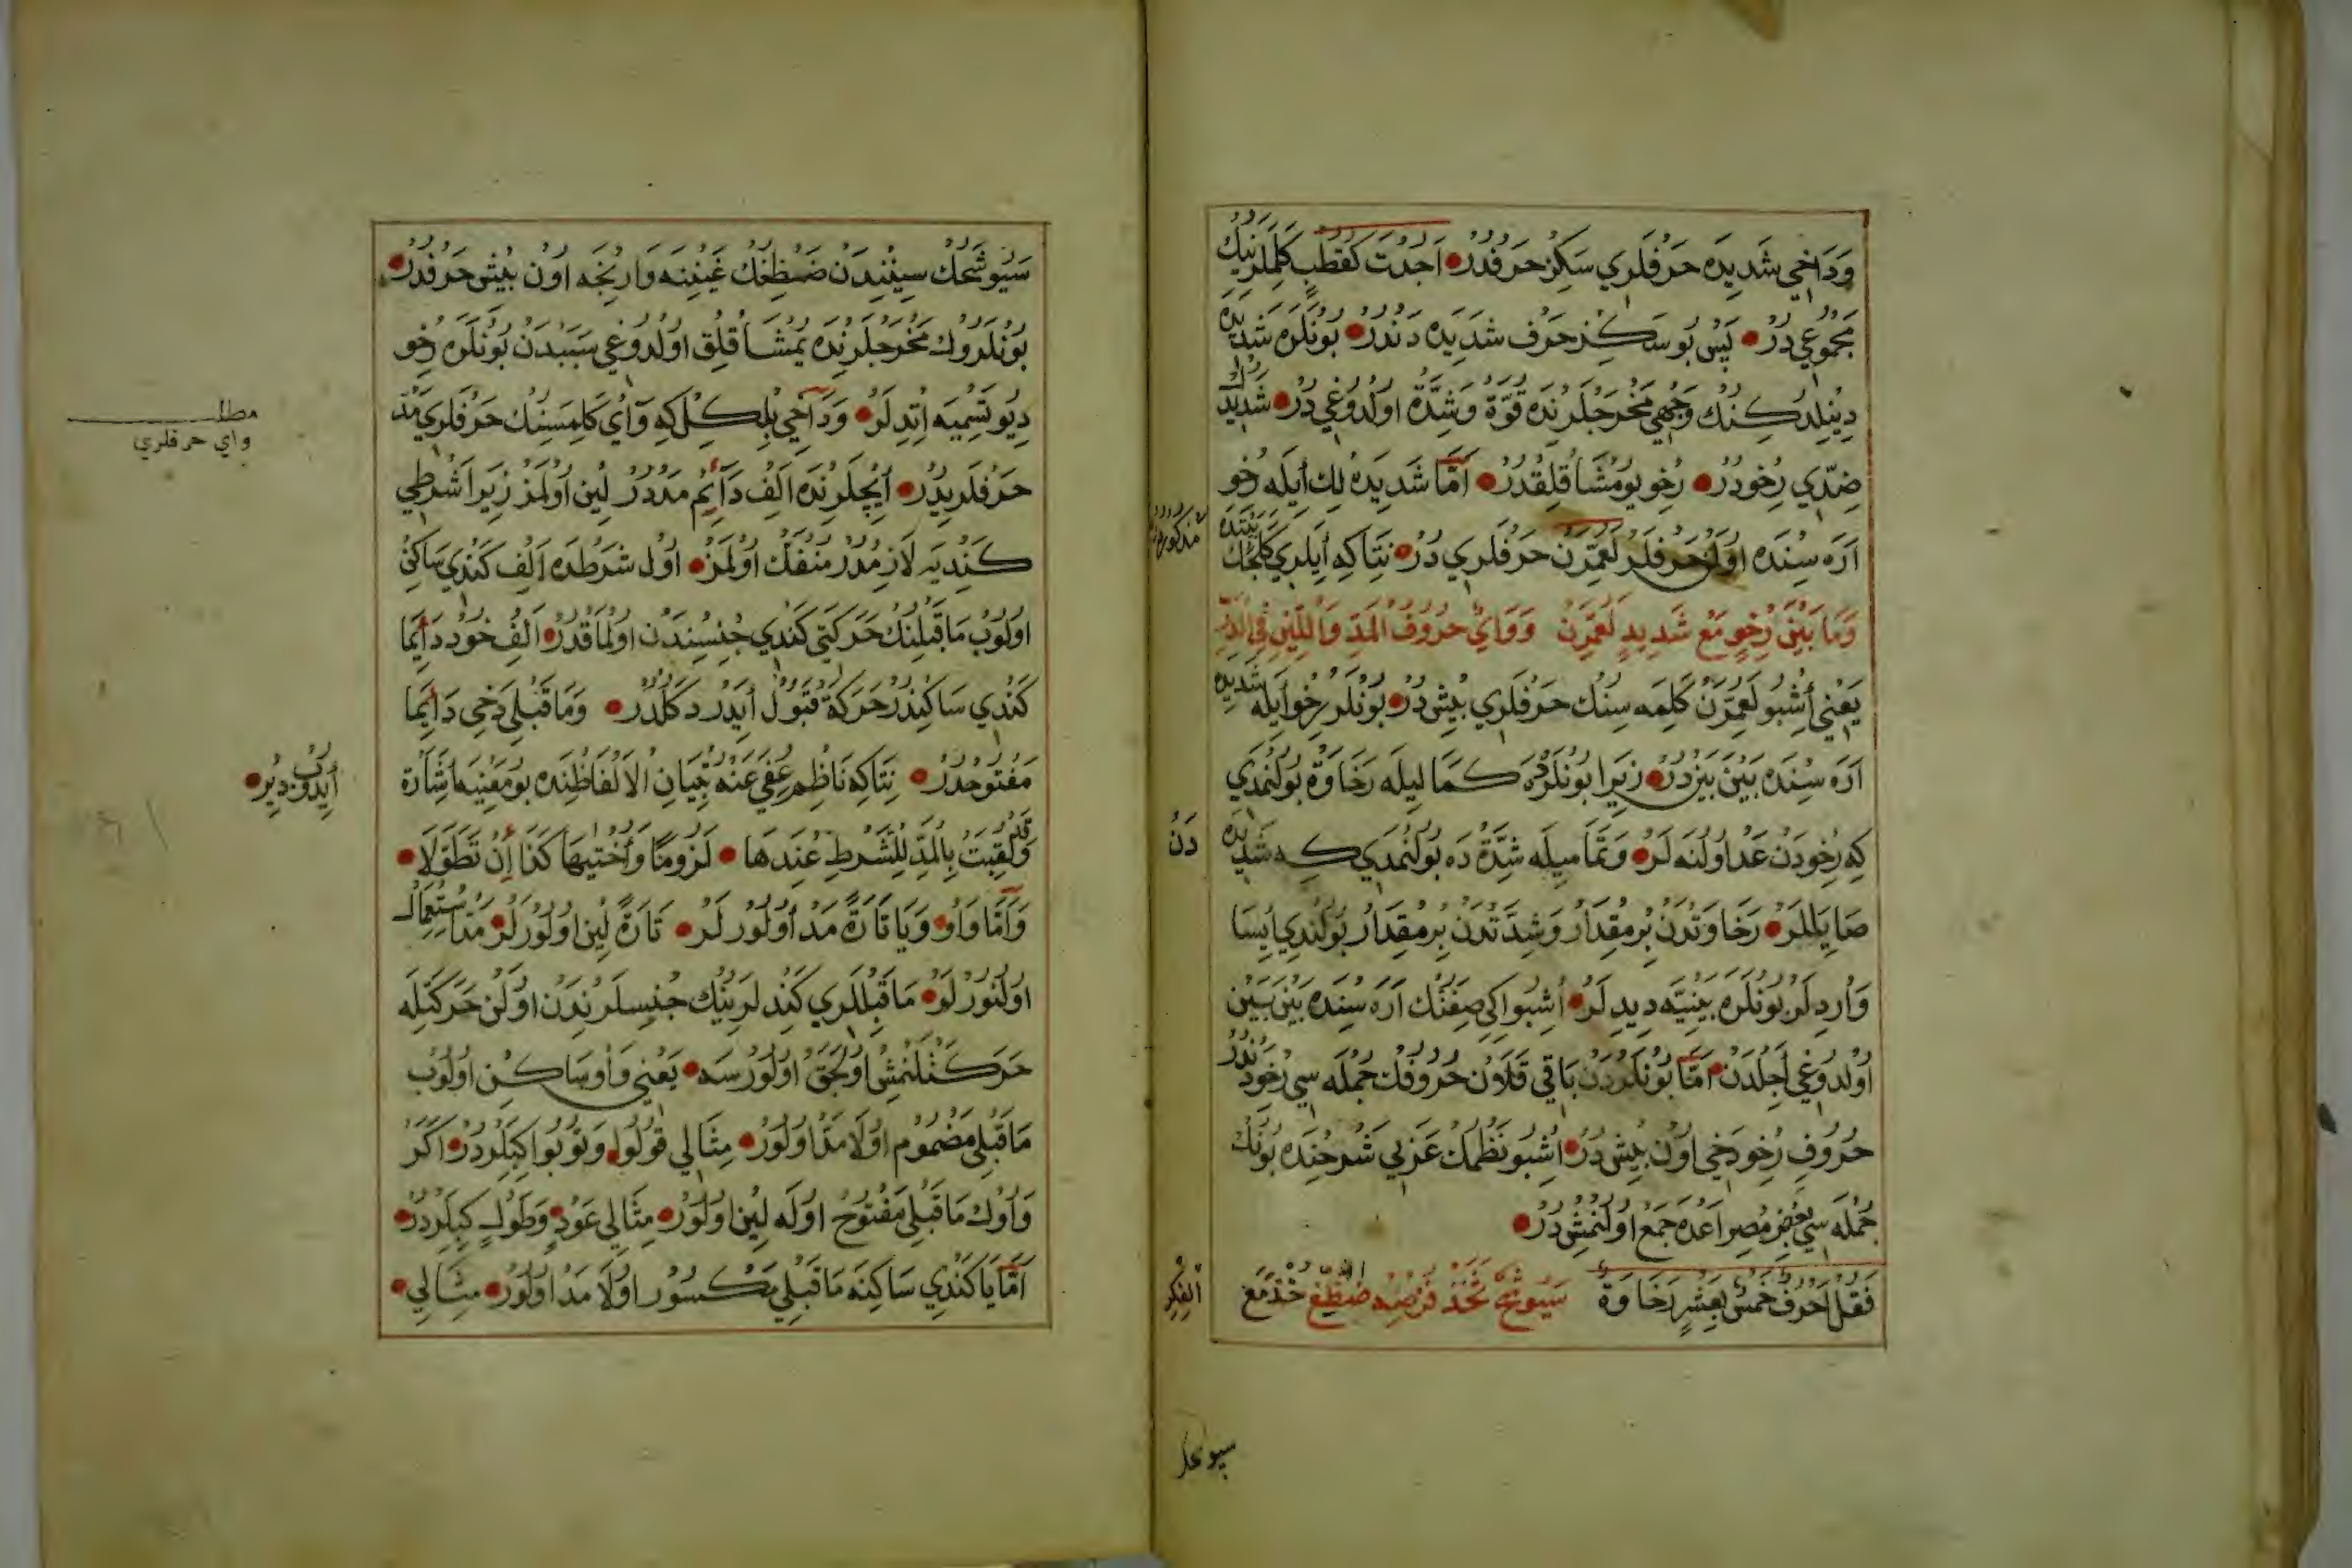 وَدَاخِي شَدِيدَه حَرْفلَرِي سَكِزْ حَرْفدُرْ اَجَدَتْ كَقُطْبٍ كَلِمَلَرِنِيكْ
مَجْمُوعِي دُرْ پَسْ بُو سَكِزْ حَرْف شَدِيدَه دَنْدُرْ بُونْلَرَه شَدِيدَه
دِينِلْدِكِنُكْ وَجْهِي مَخْرَجْلَرِنْدَه قُوَّة وَشِدَّة اولْدُوغِي دُرْ شَدِيدَنُكْ
ضِدِّي رِخْودُرْ رِخْو يُومْشَاقْلِقْدُرْ اَمَّا شَدِيدَه لِكْ اَيلَه رِخْو
اَرَه سِنْدَه اوْلَنْ حَرْفلَرْ لَعُمَّرَنْ حَرْفلَرِي دُرْ نِتَاكِه اَيلَرِي كَلَجَكْ بَيْتْدَه
مذكوردر
وَمَا بَيْنَ رِخْوٍ مَعْ شَدِيدٍ لَعُمَّرَنْ وَوَايٌ حُرُوفُ الْمَدِّ وَاللِّينِ فِي الذِّكْرِ
يَعْنِي اُشْبُو لَعُمَّرَنْ كَلِمَه سِنُكْ حَرْفلَرِي بِيْشْ دُرْ بُونْلَرْ رِخْو اَيلَه شَدِيدَه
اَرَه سِنْدَه بَيْنَ بَيْنَ دُرْ زِيرَا بُونْلَرْدَه كَمَا لِيلَه رَخَاوَة بُولُنْمَدِي
كِه رِخْودَنْ عَدّ اولُنَه لَرْ وَتَمَامِيلَه شِدَّة دَه بُولُنْمَدِي كِه شَدِيدَه
دَنْ
صَايَلَلَرْ رَخَاوَتْدَنْ بِرْ مِقْدَارْ وَشِدَّتْدَنْ بِرْ مِقْدَارْ بُولُنْدِي اِيسَا
وَارِدِلَرْ بُونْلَرَه بَيْنِيَّه دِيدِلَرْ اُشْبُو اِكِي صِفَتُكْ اَرَه سِنْدَه بَيْنَ بَيْنَ
اوْلْدُوغِي اَجِلْدَنْ اَمَّا بُونْلَرْدَنْ بَاقِي قَلَانْ حُرُوفُكْ جُمْلَه سِي رِخْودَنْدُرْ
حُرُوفِ رِخْو دَخِي اوُنْ بِيْشْ دُرْ اُشْبُو نَظْمُكْ عَرَبِي شَرْحِنْدَه بُونُكْ
جُمْلَه سِي بَعْضِ مِصْرَاعْدَه جَمْعْ اولُنْمِشْ دُرْ
فَقُلْ اَحْرُفٌ خَمْسٌ بِعَشْرٍ رَخَاوَةٌ سَيُوشَحُ تَخُذْ خُذْ مَعَ
الْفِكْرِ
سَيُوشَحُكْ سِينِنْدَنْ ضَظِغُكْ غَيْنِنَه وَارِنْجَه اوُنْ بِيْشْ حَرْفدُرْ
بُونْلَرُوكْ مَخْرَجْلَرِنْدَه يُمْشَاقْلِقْ اولْدُوغِي سَبَبْدَنْ بُونْلَرَه رِخْو
دِيُو تَسْمِيَه اِتْدِلَرْ وَدَاخِي بِلْكِلْ كِه وَاْيٌ كَلِمَسِنُكْ حَرْفلَرِي مَدّ
مطلب
واي حرفلري
حَرْفلَرِيدُرْ اِيچْلَرِنْدَه اَلِفْ دَائِمْ مَدّدُرْ لِينْ اوُلْمَزْ زِيرَا شَرْطِي
كَنْدِيَه لَازِمْدُرْ مُنْفَكْ اوُلْمَزْ اوُلْ شَرْطدَه اَلِفْ كَنْدِي سَاكِنْ
اولُوبْ مَا قَبْلِنُكْ حَرَكَتِي كَنْدِي جِنْسِنْدَنْ اولْمَاقْدُرْ اَلِفْ خُودْ دَائِمَا
كَنْدِي سَاكِنْدُرْ حَرَكَة قَبُولْ اَيدَرْ دَكُلْدُرْ وَمَا قَبْلِي دَخِي دَائِمَا
مَفْتُوحدُرْ نِتَاكِه نَاظِمْ عُفِيَ عَنْهُ تِبْيَانِ الْاَلْفَاظِنْدَه بُو مَعْنِيَه اِشَارَة
اَيدُوبْ دِيرْ
وَقَدْ لُقِّبَتْ بِالْمَدِّ لِلشَّرْطِ عِنْدَهَا لُزُومًا وَاُخْتَيْهَا كَذَا اِنْ تَطَوَّلَا
وَاَمَّا وَاوْ وَيَا تَارَةً مَدْ اُولُورلَرْ تَارَةً لِينْ اولُورلَرْ مَدّ اسْتِعْمَال
اولْنُورْلَرْ مَا قَبْلْلَرِي كَنْدِلَرِينِيكْ جِنْسلَرِنْدَنْ اوْلَنْ حَرَكَتْلَه
حَرَكَتْلَنْمِشْ اوُلَجَقْ اوُلُورْسَه يَعْنِي وَاوْ سَاكِنْ اوُلُوبْ
مَا قَبْلِي مَضْمُومْ اوُلَا مَدّ اوُلُورْ مِثَالِي قُولُوا وَتُوبُوا كِبِلَرْدُرْ اَكَرْ
وَاوُكْ مَا قَبْلِي مَفْتُوحْ اوُلَه لِينْ اوُلُورْ مِثَالِي عَوْدٍ وَطَوْلٍ كِبِلَرْدُرْ
اَمَّا يَا كَنْدِي سَاكِنَه مَا قَبْلِي مَكْسُورْ اوُلَا مَدْ اوُلُورْ مِثَالِي